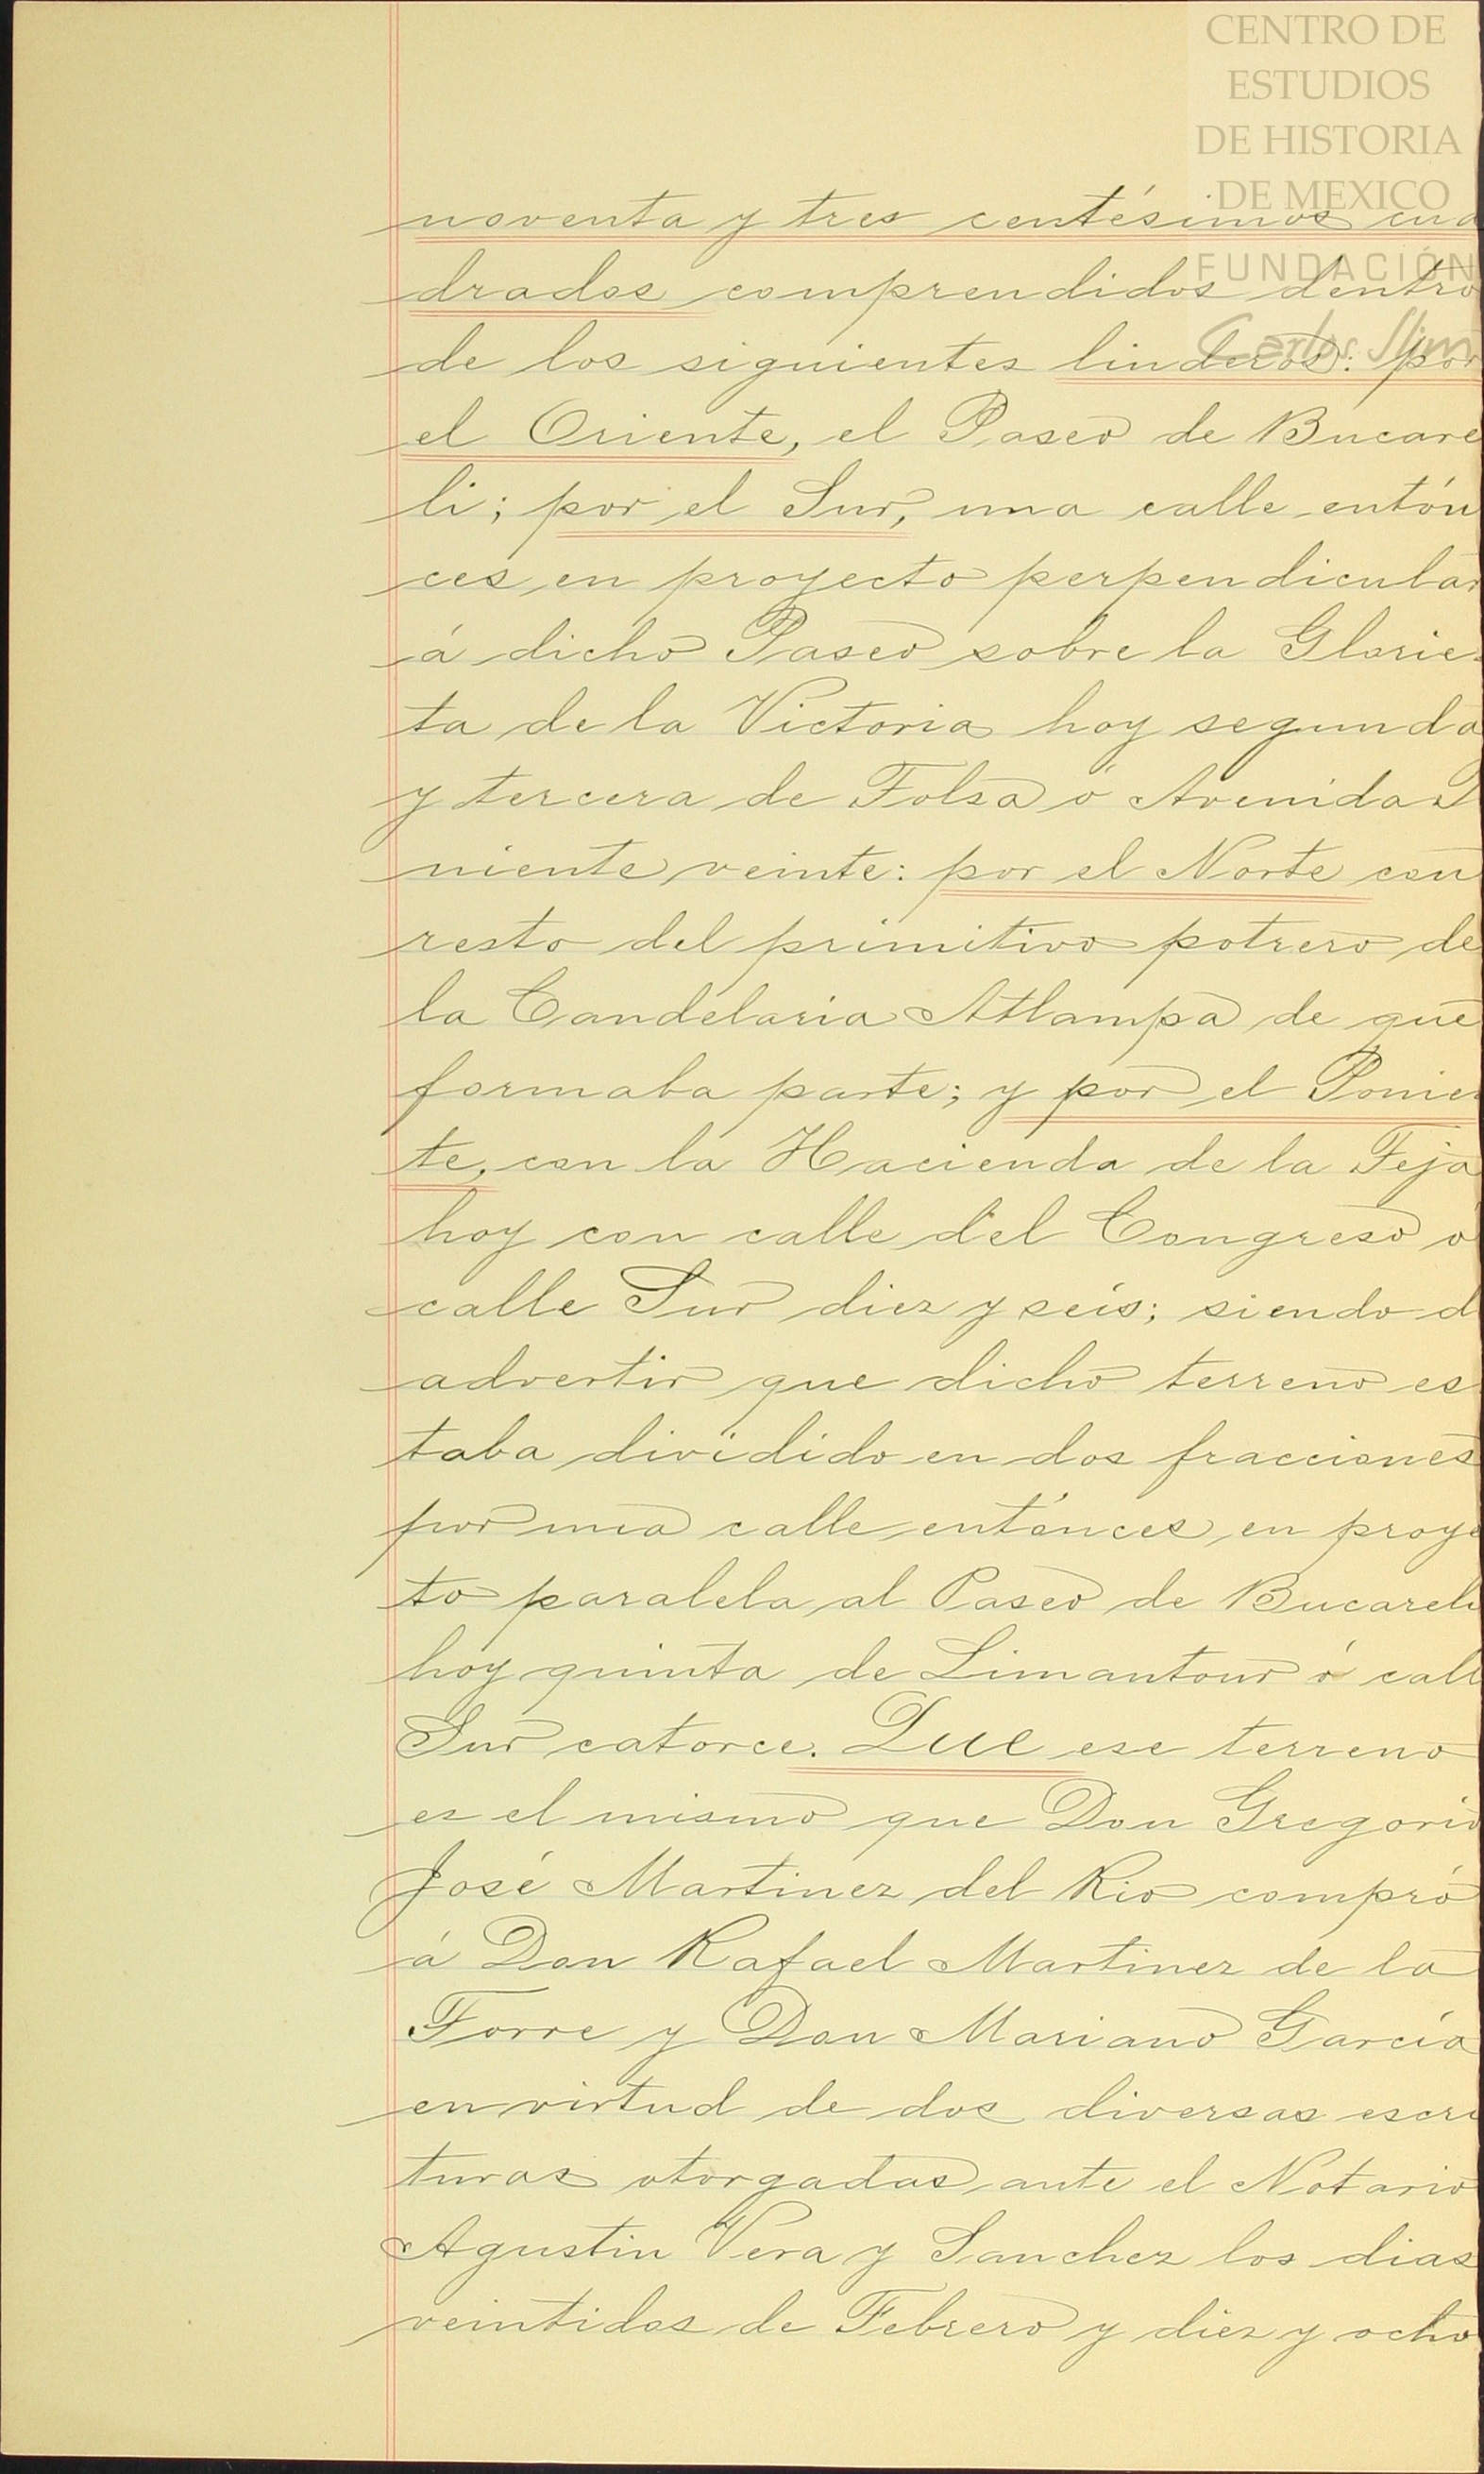 CENTRO DE
ESTUDIOS
DE HISTORIA
DE MEXICO
FUNDACIÓN
Carlos Slim
noventa y tres centésimos cua
drados comprendidos dentro
de los siguientes linderos: por
el Oriente, el Paseo de Bucare
li; por el Sur, una calle entón
ces en proyecto perpendicular
á dicho Paseo sobre la Glorie
ta de la Victoria hoy segunda
y tercera de Tolsa ó Avenida P
niente veinte: por el Norte con
resto del primitivo potrero de
la Candelaria Atlampa de que
formaba parte; y por el Ponien
te, con la Hacienda de la Teja
hoy con calle del Congreso ó
calle Sur diez y seis; siendo d
advertir que dicho terreno es
taba dividido en dos fracciones
por una calle entónces en proye
to paralela al Paseo de Bucareli
hoy quinta de Limantour ó call
Sur catorce. Que ese terreno
es el mismo que Don Gregorio
José Martinez del Rio compró
á Don Rafael Martinez de la
Torre y Don Mariano García
en virtud de dos diversas escri
turas otorgadas ante el Notario
Agustin Vera y Sanchez los dias
veintidos de Febrero y diez y ocho